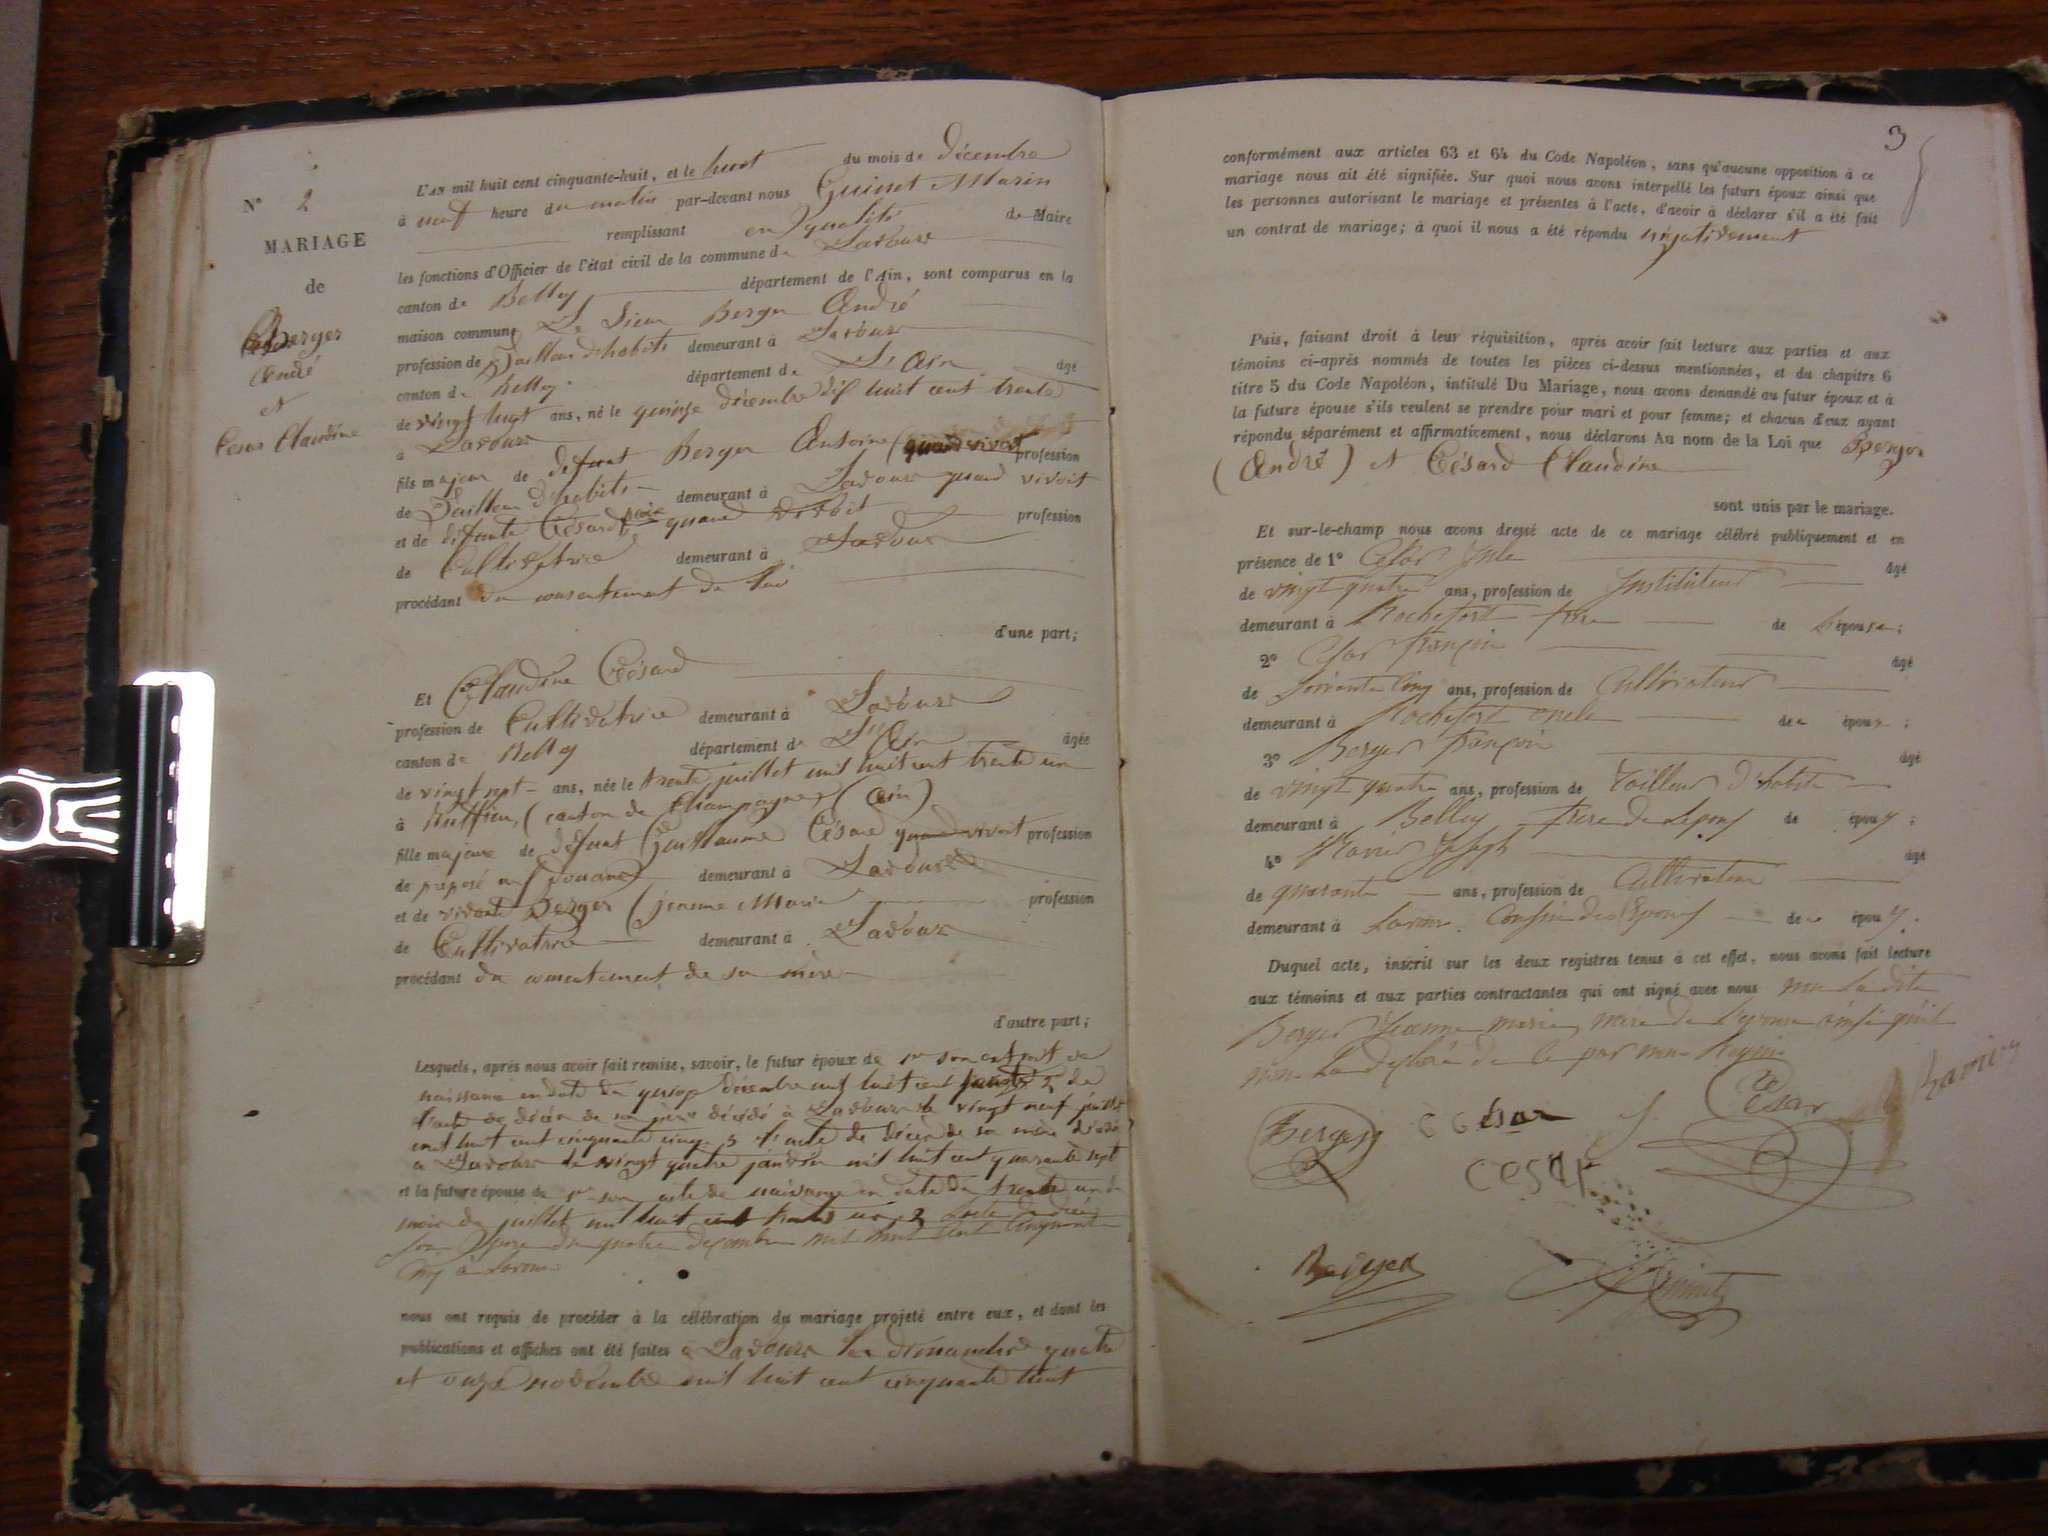 N° 2
MARIAGE
de
Berger
André
et
Cesar Claudine
L'AN mil huit cent cinquante-huit, et le huit du mois de décembre
à neuf heure du matin par-devant nous Guinet Marin
remplissant en qualité de Maire
les fonctions d'Officier de l'état civil de la commune de Lavours
canton de Belley département de l'Ain, sont comparus en la
maison commune Le Sieur Berger André
profession de Tailleur d'habits demeurant à Lavours
canton de Belley département de L'Ain âgé
de vingt huit ans, né le quinze décembre dix huit cent trente
à Lavours
fils majeur de defunt Berger Antoine (quand vivoit profession
de Tailleur d'habits demeurant à Lavours quand vivoit
et de defunte Césard quand vivoit profession
de Cultivatrice demeurant à Lavours
procédant du consentement de lui
d'une part;
Et Claudine Césard
profession de Cultivatrice demeurant à Lavours
canton de Belley département de L'Ain âgée
de vingt sept ans, née le trente juillet mil huit cent trente un
à Ruffieu, (canton de Champagne, (Ain)
fille majeure de défunt Guillaume Césard quand vivoit profession
de préposé des douanes demeurant à Lavours
et de vivante Berger (jeanne Marie profession
de Cultivatrice demeurant à Lavours
procédant du consentement de sa mère
d'autre part;
Lesquels, après nous avoir fait remise, savoir, le futur époux de 1° son extrait de
naissance en date du quinze décembre mil huit cent trente 2 de
l'acte de décès de son père décédé à Lavours le vingt neuf juillet
mil huit cent cinquante cinq 3 l'acte de décès de sa mère décédée
à Lavours le vingt quatre janvier mil huit cent quarante sept
et la future épouse de 1° son acte de naissance en date du trente un du
mois de juillet mil huit cent trente un 2 l'acte de décès
son père du quatre décembre mil huit cent cinquante
cinq à Lavours
nous ont requis de procéder à la célébration du mariage projeté entre eux, et dont les
publications et affiches ont été faites à Lavours les dimanches quatre
et onze novembre mil huit cent cinquante huit
3
conformément aux articles 63 et 64 du Code Napoléon, sans qu'aucune opposition à ce
mariage nous ait été signifiée. Sur quoi nous avons interpellé les futurs époux ainsi que
les personnes autorisant le mariage et présentes à l'acte, d'avoir à déclarer s'il a été fait
un contrat de mariage; à quoi il nous a été répondu négativement
Puis, faisant droit à leur réquisition, après avoir fait lecture aux parties et aux
témoins ci-après nommés de toutes les pièces ci-dessus mentionnées, et du chapitre 6
titre 5 du Code Napoléon, intitulé Du Mariage, nous avons demandé au futur époux et à
la future épouse s'ils veulent se prendre pour mari et pour femme; et chacun d'eux ayant
répondu séparément et affirmativement, nous déclarons Au nom de la Loi que Berger
(André) et Césard Claudine
sont unis par le mariage.
Et sur-le-champ nous avons dressé acte de ce mariage célébré publiquement et en
présence de 1° César Jule âgé
de vingt quatre ans, profession de Instituteur
demeurant à Rochefort frère de l'épouse;
2° César françois âgé
de soixante cinq ans, profession de Cultivateur
demeurant à Rochefort oncle de époux;
3° Berger françois âgé
de vingt quatre ans, profession de Tailleur d'habits
demeurant à Belley frère de l'epoux de époux;
4° Joseph âgé
de quarante ans, profession de Cultivateur
demeurant à Lavours. Cousin des Epoux de époux.
Duquel acte, inscrit sur les deux registres tenus à cet effet, nous avons fait lecture
aux témoins et aux parties contractantes qui ont signé avec nous non la dite
Berger Jeanne marie, mère de l'epouse ainsi qu'il
de ce par nous Requis
Berger César César
cesar
Berger Guinet